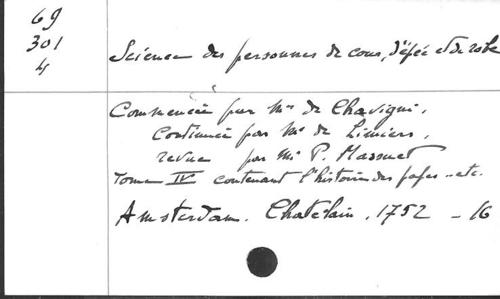 69
301
4
Science des personnes de cour, d'épée et de robe
Commencée par Mr de Chavigni,
Continuée par Mr de Limiers,
revue par Mr P. Massuet
Tome IV contenant l'histoire des papes .. etc.
Amsterdam. Chatelain, 1752 - 16